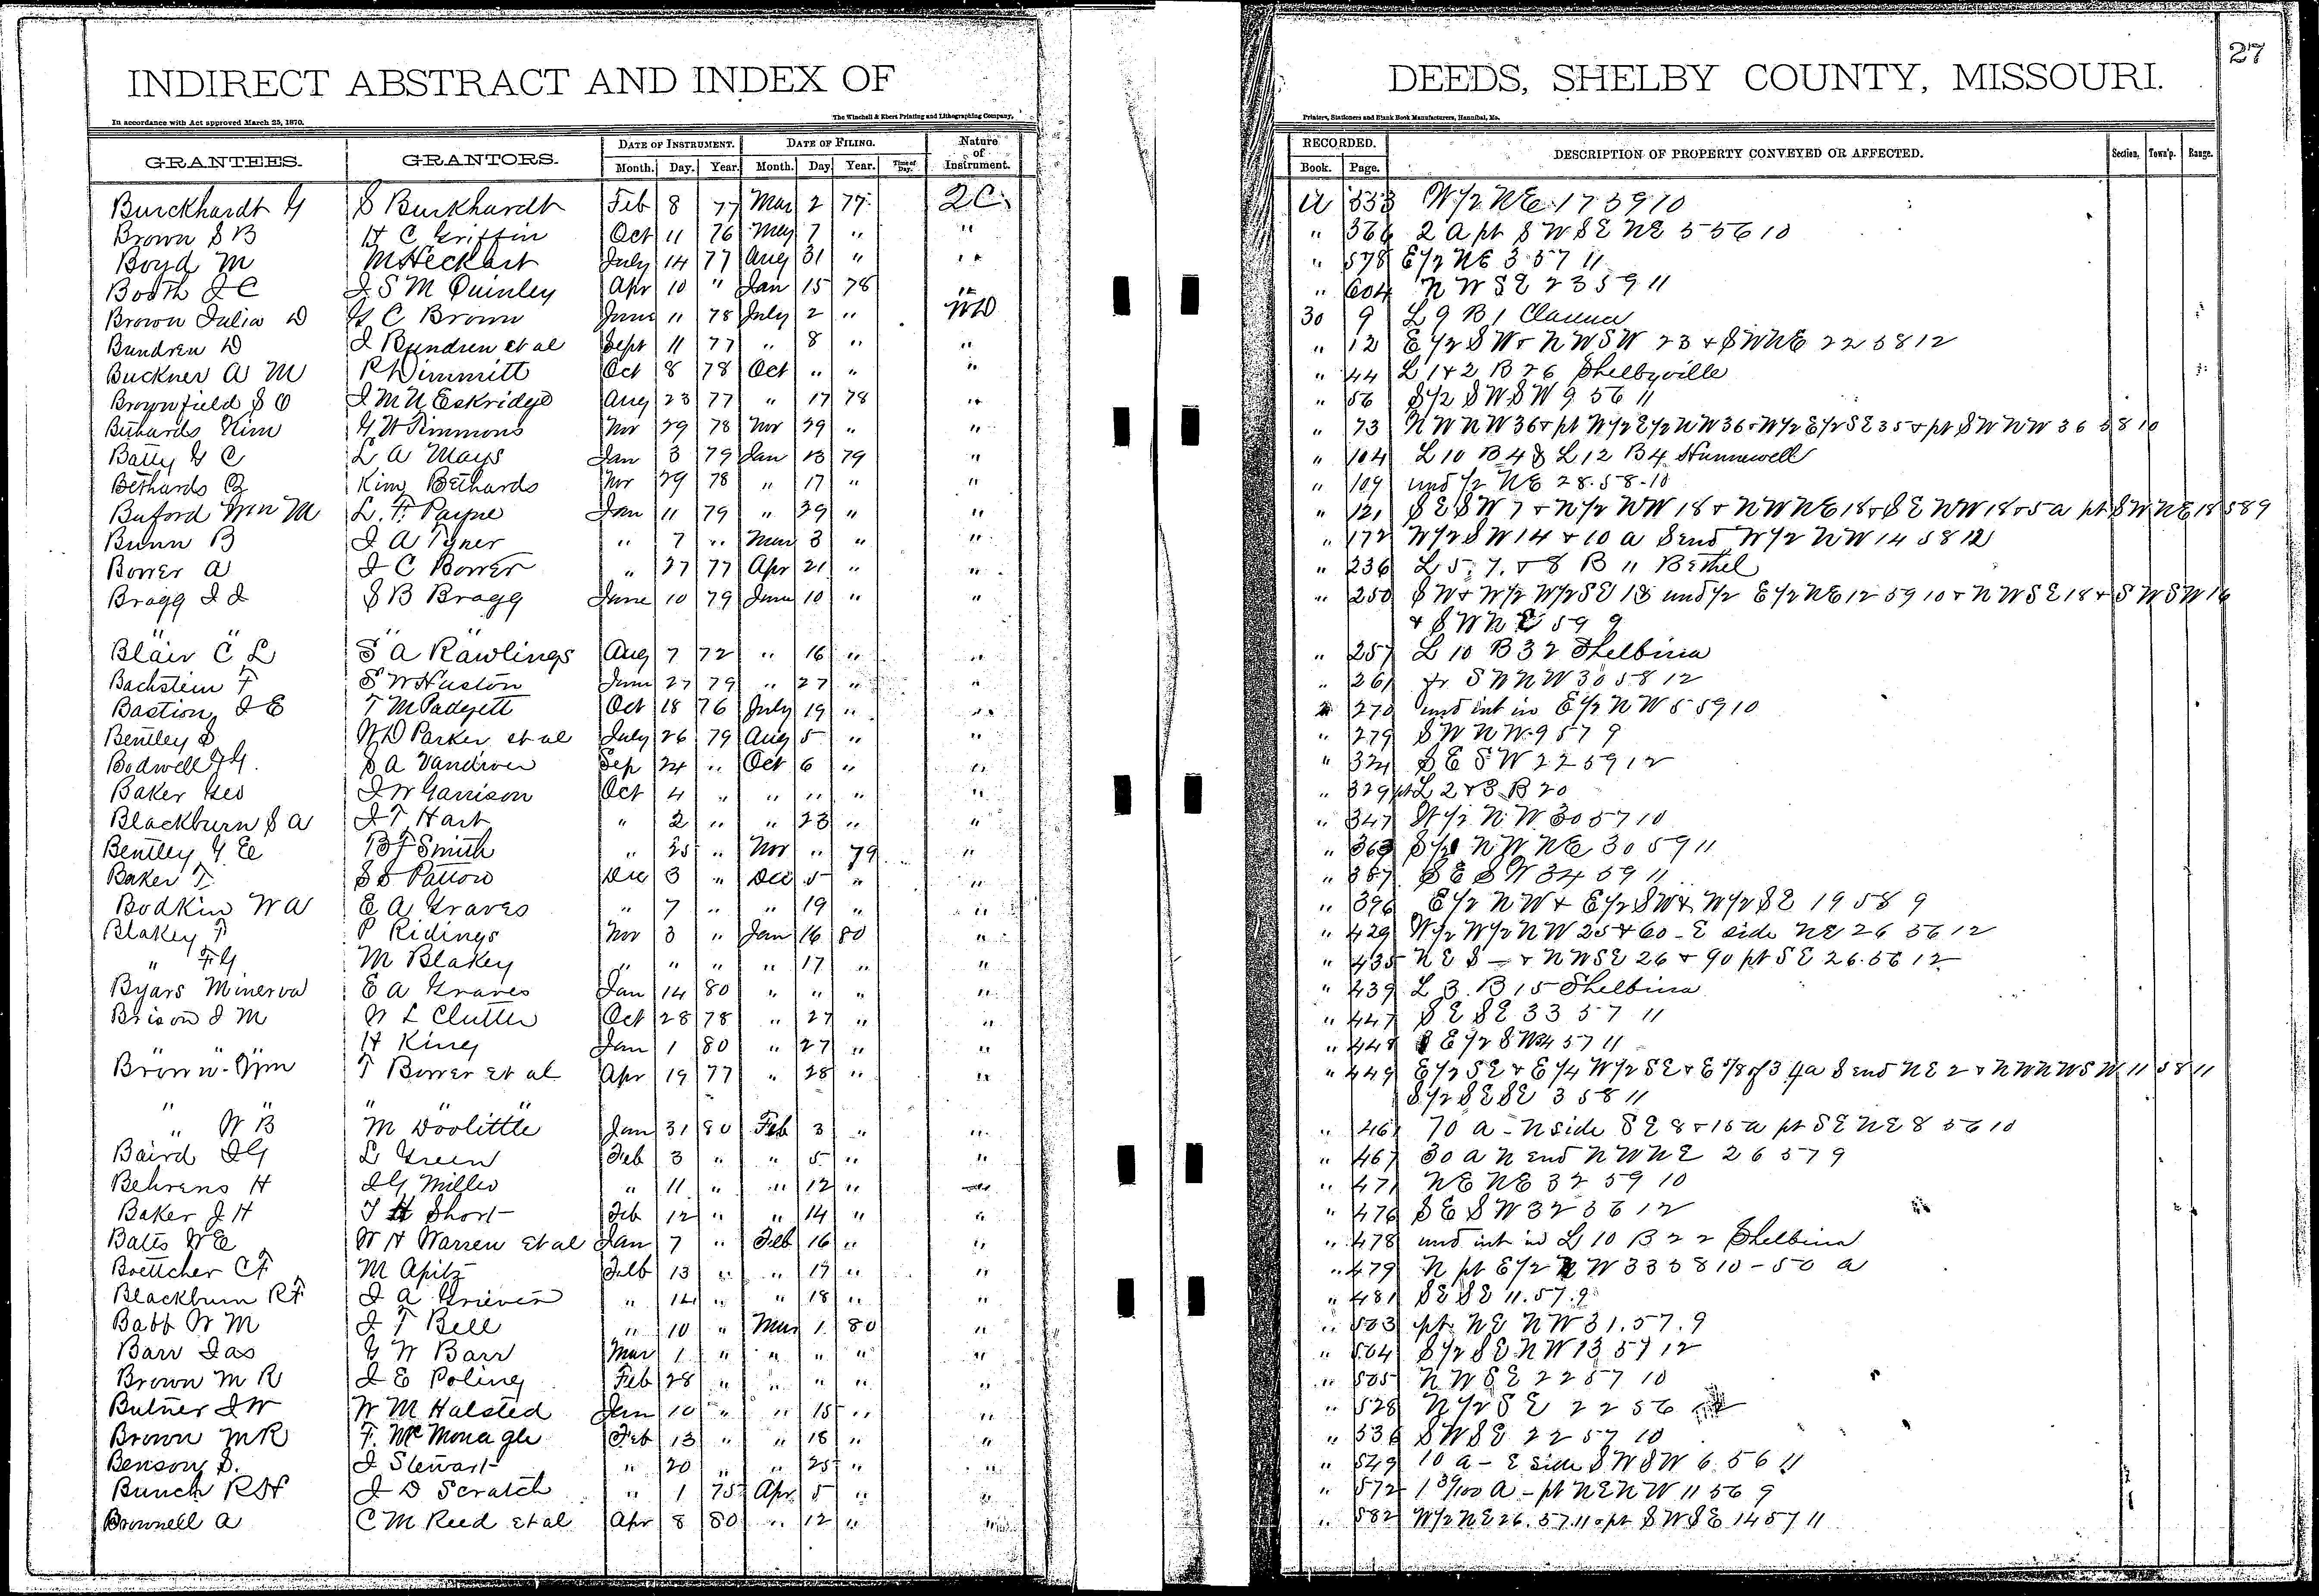 27
INDIRECT ABSTRACT AND INDEX OF DEEDS, SHELBY COUNTY, MISSOURI.
In accordance with Act approved March 25, 1870. The Winchell & Ebert Printing and Lithographing Company, Printers, Stationers and Blank Book Manufacturers, Hannibal, Mo.
GRANTEES. GRANTORS. DATE OF INSTRUMENT. DATE OF FILING. Nature of Instrument. RECORDED. DESCRIPTION OF PROPERTY CONVEYED OR AFFECTED. Section, Town'p. Range.
Month. Day. Year. Month. Day. Year. Time of Day. Book. Page.
Burckhardt G S Burkhardt Feb 8 77 Mar 2 77 2C 333 W/2 NE 17 59 10
Brown S B H C Griffin Oct 11 76 May 7 " " " 366 2 a pt S W S E NE 5 56 10
Boyd M M Heckart July 14 77 Aug 31 " " " 578 E/2 NE 3 57 11
Booth J C J S M Quinley Apr 10 " Jan 15 78 " " 604 N W S E 23 59 11
Brown Julia D G C Brown June 11 78 July 2 " WD 30 9 L 9 B 1 Clarence
Bundren D J Bundren et al Sept 11 77 " 8 " " " 12 E/2 S W & N W S W 23 & S W N E 22 58 12
Buckner A M P Dimmitt Oct 8 78 Oct " " " " 44 L 1 & 2 B 26 Shelbyville
Brownfield S O J M N Eskridge Aug 23 77 " 17 78 " " 56 S/2 S W S W 9 56 11
Bethards Kim G W Simmons Nov 29 78 Nov 29 " " " 73 N W N W 36 & pt W/2 E/2 N W 36 & W/2 E/2 S E 35 & pt S W N W 36 58 10
Batty G C L A Mays Jan 3 79 Jan 13 79 " " 104 L 10 B 4 & L 12 B 4 Hunnewell
Bethards B King Bethards Nov 29 78 " 17 " " " 109 und 1/2 NE 28.58.10
Buford Wm M L. F. Payne Jan 11 79 " 29 " " " 121 S E S W 7 & N/2 N W 18 & N W N E 18 & S E N W 18 & 5 a pt S W N E 18 58 9
Bunn B J A Tyner " 7 " Mar 3 " " " 172 W/2 S W 14 & 10 a S end W/2 N W 14 58 12
Bower A J C Bower " 27 77 Apr 21 " " " 236 L 5, 7, & 8 B 11 Bethel
Bragg J J S B Bragg June 10 79 June 10 " " " 250 S W & W/2 W/2 S E 13 und 1/2 E/2 N E 12 59 10 & N W S E 18 & S W S W 16
" " " " & S W N E 59 9
Blair C L S A Rawlings Aug 7 72 " 16 " " " 257 L 10 B 32 Shelbina
Bachstein F S W Huston June 27 79 " 27 " " " 261 fr S W N W 30 58 12
Bastion J E T M Padgett Oct 18 76 July 19 " " " 270 und int in E/2 N W 5 59 10
Bentley S W D Parker et al July 26 79 Aug 5 " " " 279 S W N W 9 57 9
Bodwell F G. S A Vandiver Sep 24 " Oct 6 " " " 324 S E S W 22 59 12
Baker Geo J W Garrison Oct 4 " " " " " " 329 pt L 2 & 3 B 20
Blackburn S A J T Hart " 2 " " 23 " " " 347 W/2 N W 30 57 10
Bentley G E B F Smith " 25 " Nov " 79 " " 363 S/2 N W N E 30 59 11
Baker T S S Patton Dec 3 " Dec 5 " " " 387 S E S W 34 59 11
Bodkin W A E A Graves " 7 " " 19 " " " 396 E/2 N W & E/2 S W & W/2 S E 19 58 9
Blakey T P Ridings Nov 3 " Jan 16 80 " " 429 W/2 W/2 N W 25 & 60 - E side N E 26 56 12
" F G M Blakey " " " " 17 " " " 435 N E S — & N W S E 26 & 90 pt S E 26.56 12
Byars Minerva E A Graves Jan 14 80 " " " " " 439 L 3 B 15 Shelbina
Brison J M W L Clutter Oct 28 78 " 27 " " " 447 S E S E 33 57 11
" " H King Jan 1 80 " 27 " " " 448 E/2 S W 34 57 11
Brown Wm T Bower et al Apr 19 77 " 28 " " " 449 E/2 S E & E/4 W/2 S E & E 5/8 of 34 a S end N E 2 & N W N W S W 11 58 11
" " " " S/2 S E S E 3 58 11
" W B M Doolittle Jan 31 80 Feb 3 " " " 461 70 a - N side S E 8 & 15 a pt S E N E 8 56 10
Baird J G L Green Feb 3 " " 5 " " " 467 30 a N end N W N E 26 57 9
Behrens H J G Miller " 11 " " 12 " " " 471 N E N E 32 59 10
Baker J H T H Short Feb 12 " " 14 " " " 476 S E S W 32 56 12
Bates W E W H Warren et al Jan 7 " Feb 16 " " " 478 und int in L 10 B 22 Shelbina
Boettcher C F M Apitz Feb 13 " " 17 " " " 479 N pt E/2 N W 33 58 10 - 50 a
Blackburn R F J A Grieven " 14 " " 18 " " " 481 S E S E 11.57.9
Babb W M J T Bell " 10 " Mar 1 80 " " 503 pt N E N W 31.57.9
Barr Jas G W Barr Mar 1 " " " " " " 504 S/2 S E N W 13 57 12
Brown M R J E Poling Feb 28 " " " " " " 505 N W S E 22 57 10
Butner J W W M Halsted Jan 10 " " 15 " " " 528 N/2 S E 22 56
Brown M R F. McMonagle Feb 13 " " 18 " " " 536 S W S E 22 57 10
Benson S. J Stewart " 20 " " 25 " " " 549 10 a - E side S W S W 6 56 11
Bunch R H J D Scratch " 1 75 Apr 5 " " " 572 1 39/100 a - pt N E N W 11 56 9
Brownell A C M Reed et al Apr 8 80 " 12 " " " 582 W/2 N E 26.57.11 & pt S W S E 14 57 11